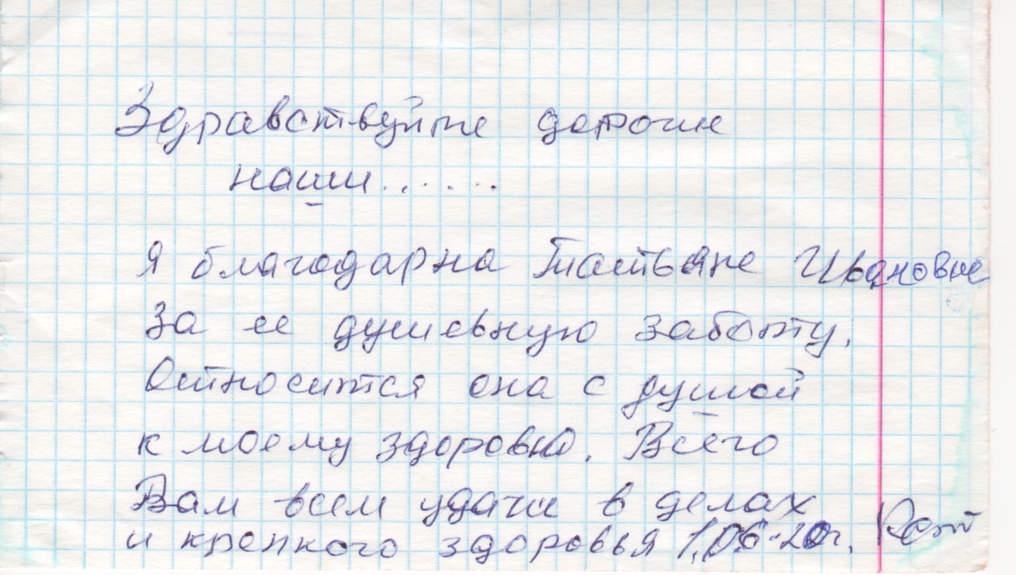 Здравствуйте дорогие
наши......
Я благодарна Татьяне Ивановне
за ее душевную заботу.
Относится она с душой
к моему здоровью. Всего
Вам всем удачи в делах
и крепкого здоровья 1.06.20г.